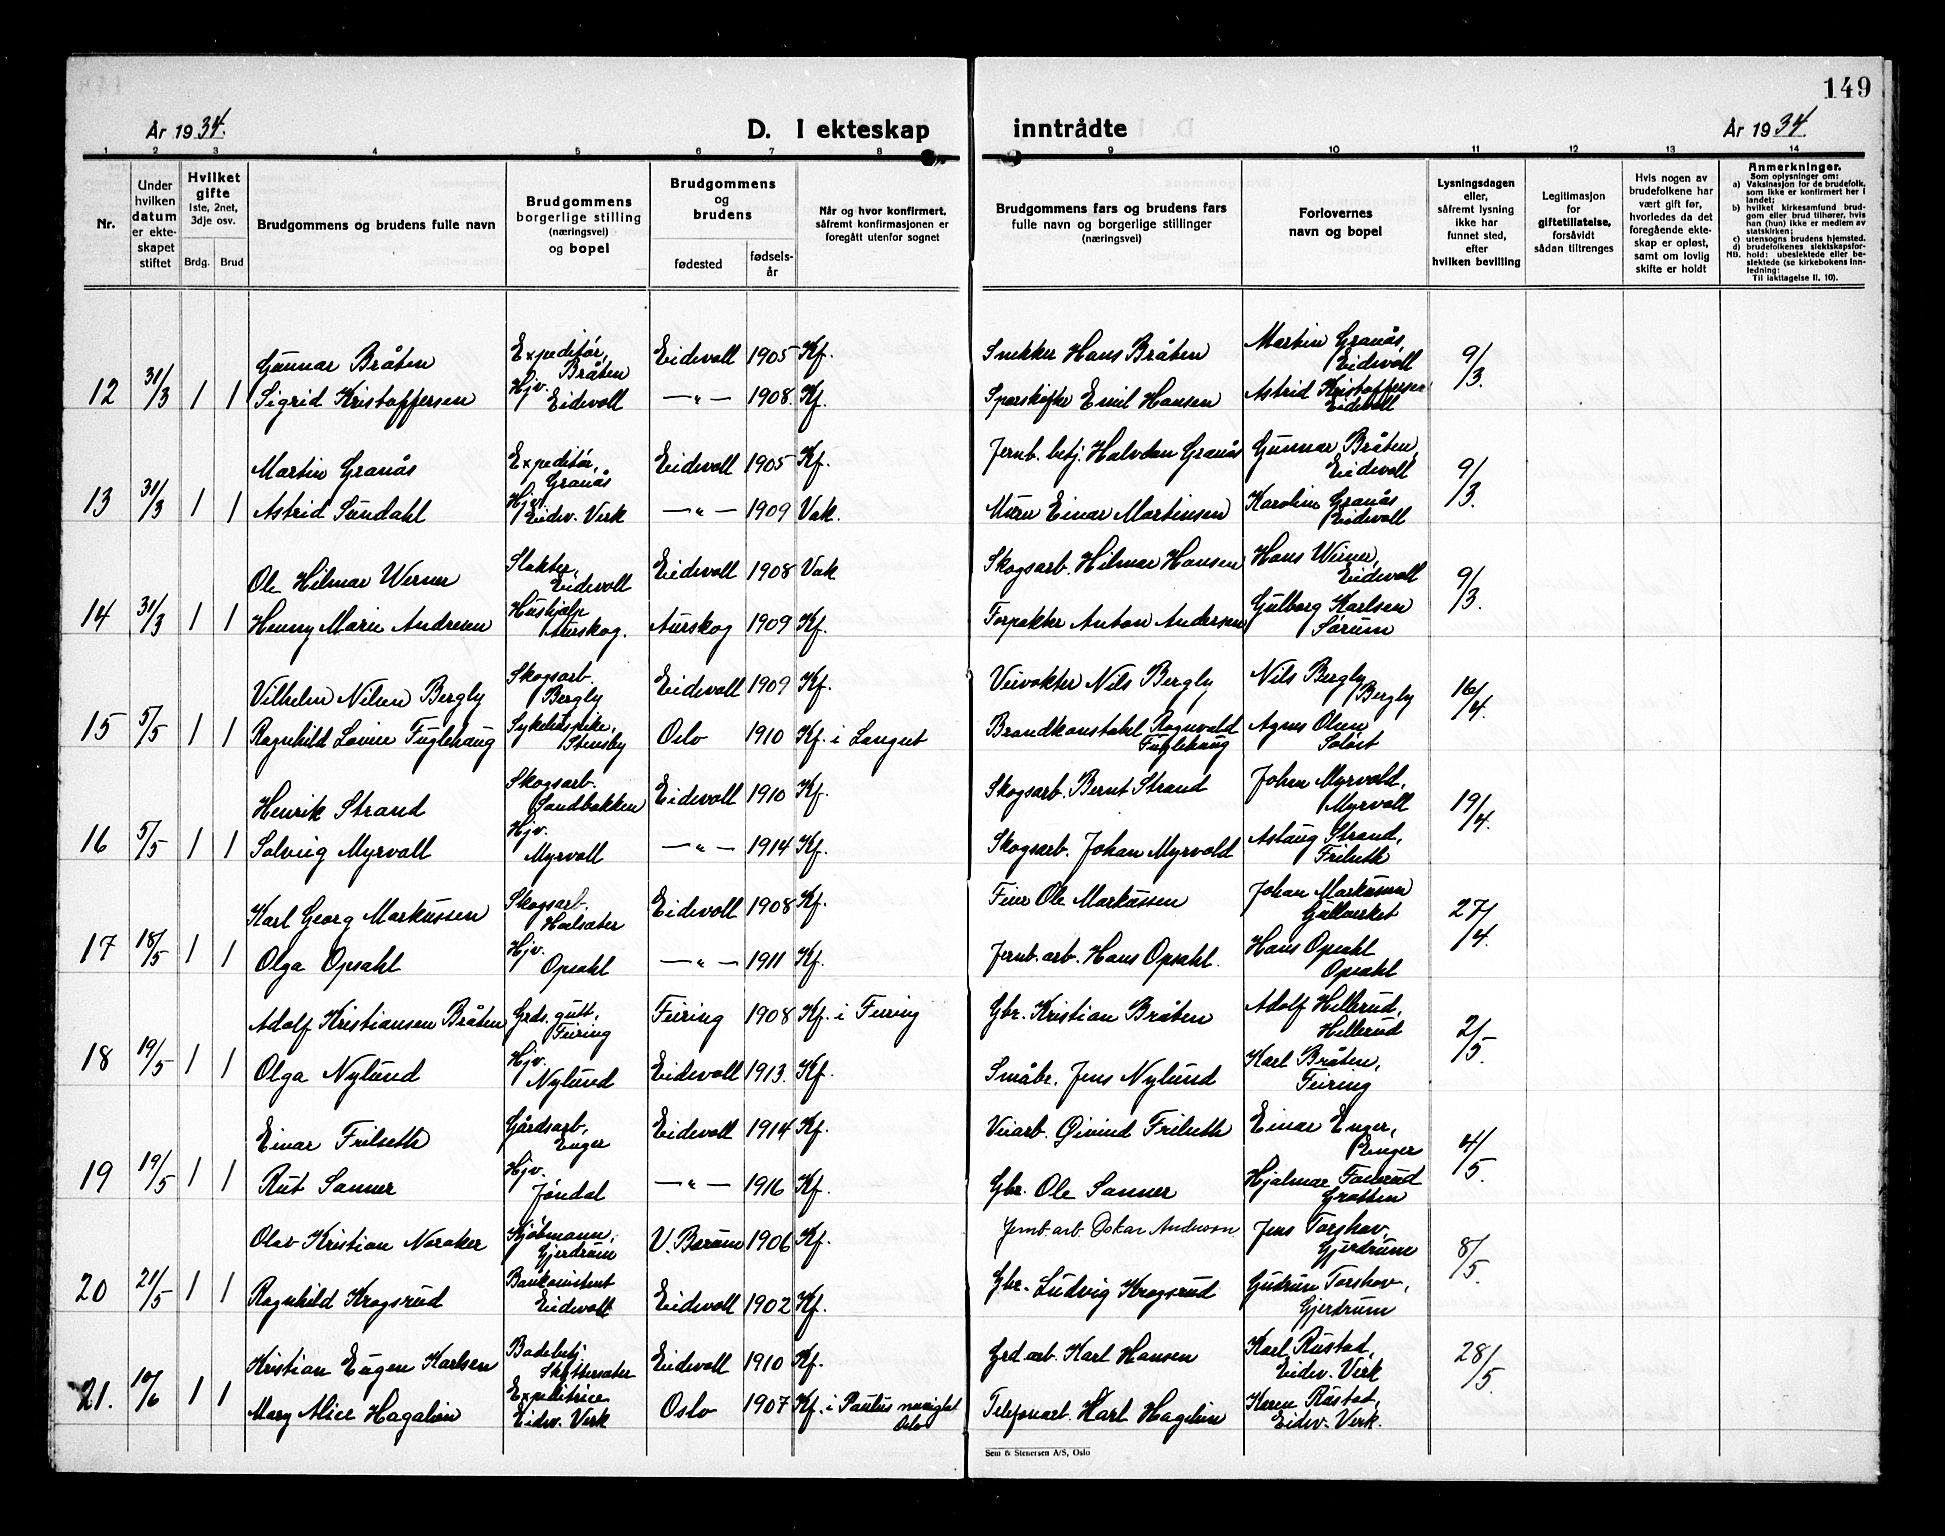 149
År 1934.
D. I ekteskap inntrådte
År 1934.
1 2 3 4 5 6 7 8 9 10 11 12 13 14
Nr.
Under hvilken datum er ekteskapet stiftet
Hvilket gifte 1ste, 2net, 3dje osv.
Brdg. Brud
Brudgommens og brudens fulle navn
Brudgommens borgerlige stilling (næringsvei) og bopel
Brudgommens og brudens
fødested
fødselsår
Når og hvor konfirmert, såfremt konfirmasjonen er foregått utenfor sognet
Brudgommens fars og brudens fars fulle navn og borgerlige stillinger (næringsvei)
Forlovernes navn og bopel
Lysningsdagen eller, såfremt lysning ikke har funnet sted, efter hvilken bevilling
Legitimasjon for giftetillatelse, forsåvidt sådan tiltrenges
Hvis nogen av brudefolkene har vært gift før, hvorledes da det foregående ekteskap er opløst, samt om lovlig skifte er holdt
Anmerkninger.
Som oplysninger om:
a) Vaksinasjon for de brudefolk, som ikke er konfirmert her i landet;
b) hvilket kirkesamfund brudgom eller brud tilhører, hvis han (hun) ikke er medlem av statskirken;
c) utensogns brudens hjemsted.
d) brudefolkenes slektskapsforhold: ubeslektede eller beslektede (se kirkebokens innledning:
NB.
Til iakttagelse II, 10).
Gunnar Bråten Expeditør, Bråten Eidsvoll 1905 Kf. Snekker Hans Bråten Martin Granås, Eidsvoll 9/3.
12 31/3 1 1 Sigrid Kristoffersen Hjv. Eidsvoll —"— 1908. Kf. Emil Hansen Astrid Kristoffersen Eidsvoll
Martin Granås Expeditør, Granås Eidsvoll 1905 Kf. Jernb. betj. Halvdan Granås Gunnar Bråten, Eidsvoll 9/3.
13 31/3 1 1 Astrid Sundahl Hjv. Eidsv. Verk —"— 1909 Vak. Murer Einar Martinsen Karoline Granås Eidsvoll
Ole Hilmar Werner Slakter, Eidsvoll Eidsvoll 1908 Vak Skogsarb. Hilmar Hansen Hans Werner, Eidsvoll 9/3.
14 31/3 1 1 Henny Marie Andresen Hushjelp Aurskog. Aurskog 1909 Kf. Forpakter Anton Andersen Gulborg Karlsen Sørum
Vilhelm Nilsen Bergly Skogsarb. Bergly Eidsvoll 1909 Kf. Veivokter Nils Bergly Nils Bergly Bergly 16/4.
15 5/5 1 1 Ragnhild Lovise Fuglehaug Sykepleierske, Stensby Oslo 1910 Kf. i Langset Brandkonstabel Ragnvald Fuglehaug Agnes Olsen
Henrik Strand Skogsarb. Sandbakken Eidsvoll 1910 Kf. Skogsarb. Bernt Strand Johan Myrvold, Myrvoll 19/4.
16 5/5 1 1 Solveig Myrvoll Hjv. Myrvoll —"— 1914 Kf. Skogsarb. Johan Myrvold Aslaug Strand, Frilseth
Karl Georg Markussen Skogsarb. Eidsvoll 1908 Kf. Feier Ole Markussen Johan Markussen Gullverket 27/4.
17 18/5 1 1 Olga Opsahl Hjv. Opsahl —"— 1911 Kf. Jernb. arb. Hans Opsahl. Hans Opsahl Opsahl
Adolf Kristiansen Bråten Grds. gutt, Feiring Feiring 1908 Kf. i Feiring Gbr. Kristian Bråten Adolf Hellerud, Hellerud 2/5.
18 19/5 1 1 Olga Nylund Hjv. Nylund Eidsvoll 1913. Kf. Småbr. Jens Nylund Karl Bråten, Feiring
Einar Frilseth Gårdsarb, Enger Eidsvoll 1914 Kf. Veiarb. Øivind Frilseth Einar Enger, Enger 4/5.
19 19/5 1 1 Rut Sanner Hjv. Jøndal —"— 1916 Kf. Gbr. Ole Sanner Hjalmar
Olav Kristian Noraker Kjøbmann, Gjerdrum V. Bærum 1906 Kf. Jernb. arb. Oskar Andersen Jens Torshov, Gjerdrum 8/5.
20 21/5 1 1 Ragnhild Krogsrud Bankassistent Eidsvoll Eidsvoll 1902 Kf. Gbr. Ludvig Krogsrud Gudrun Torshov, Gjerdrum
Kristian Eugen Karlsen Badebetj. Eidsvoll 1910 Kf. Grd. arb. Karl Hansen Karl Rustad, Eidsv. Verk 28/5.
21. 10/6 1 1 Mary Alice Hagelin Expeditrice Eidsv. Verk Oslo 1907 Kf. i Paulus menighet Oslo Telefonarb. Karl Hagelin Karen Rustad, Eidsv. Verk.
Sem & Stenersen A/S, Oslo